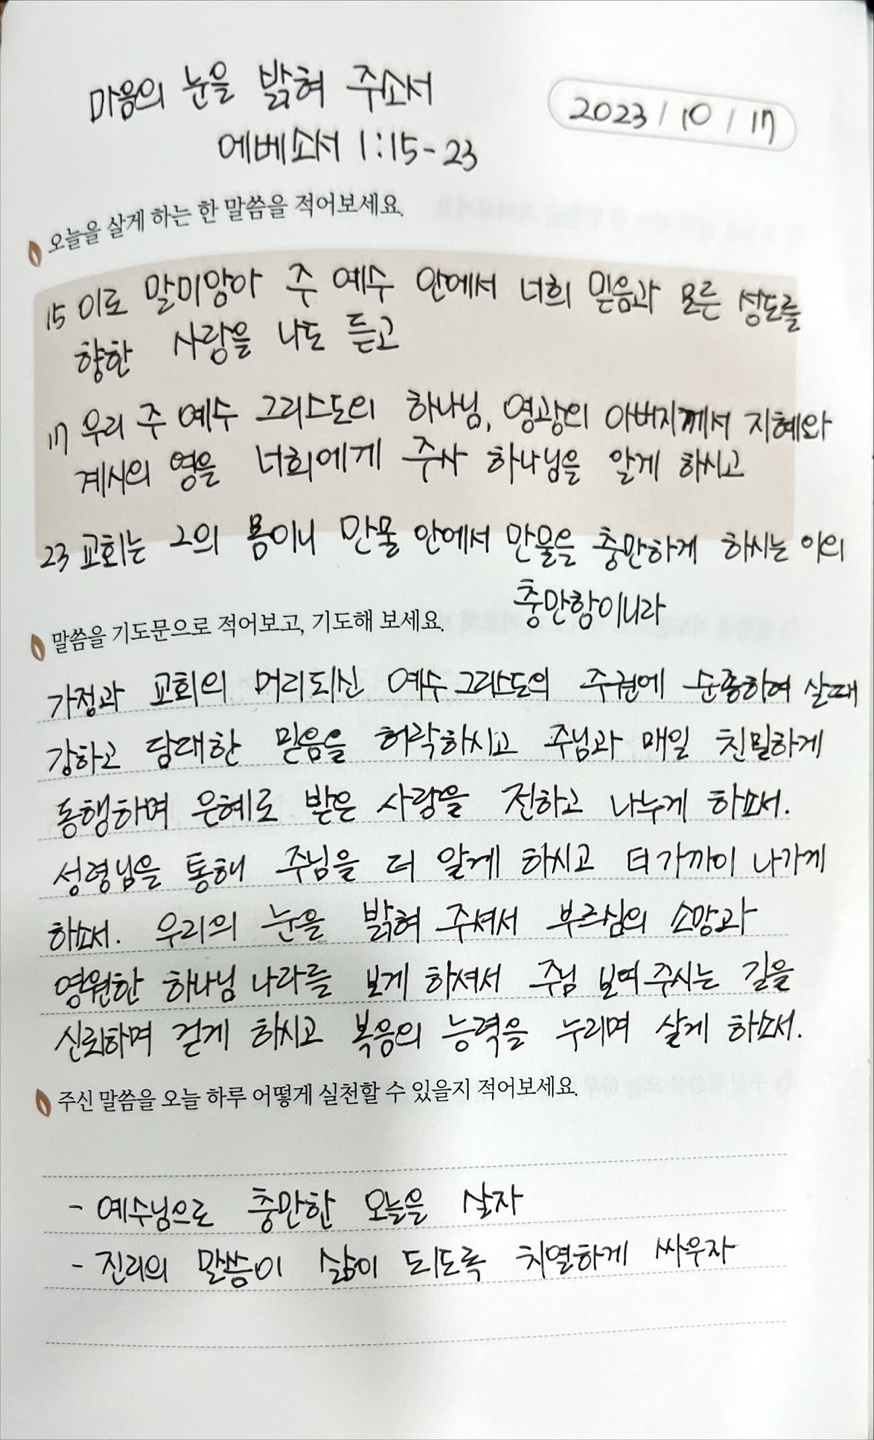 마음의 눈을 밝혀 주소서
2023 / 10 / 17
에베소서 1:15-23
오늘을 살게 하는 한 말씀을 적어보세요.
15 이로 말미암아 주 예수 안에서 너희 믿음과 모든 성도를
향한 사랑을 나도 듣고
17 우리 주 예수 그리스도의 하나님, 영광의 아버지께서 지혜와
계시의 영을 너희에게 주사 하나님을 알게 하시고
23 교회는 그의 몸이니 만물 안에서 만물을 충만하게 하시는 이의
충만함이니라
말씀을 기도문으로 적어보고, 기도해 보세요.
가정과 교회의 머리되신 예수그리스도의 주권에 순종하여 살때
강하고 담대한 믿음을 허락하시고 주님과 매일 친밀하게
동행하며 은혜로 받은 사랑을 전하고 나누게 하소서.
성령님을 통해 주님을 더 알게 하시고 더 가까이 나가게
하소서. 우리의 눈을 밝혀 주셔서 부르심의 소망과
영원한 하나님 나라를 보게 하셔서 주님 보여 주시는 길을
신뢰하며 걷게 하시고 복음의 능력을 누리며 살게 하소서.
주신 말씀을 오늘 하루 어떻게 실천할 수 있을지 적어보세요.
- 예수님으로 충만한 오늘을 살자
- 진리의 말씀이 삶이 되도록 치열하게 싸우자